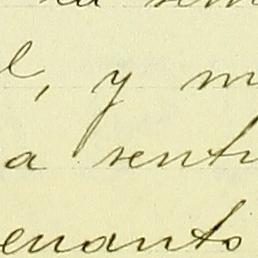 l, y m
a senti
enants